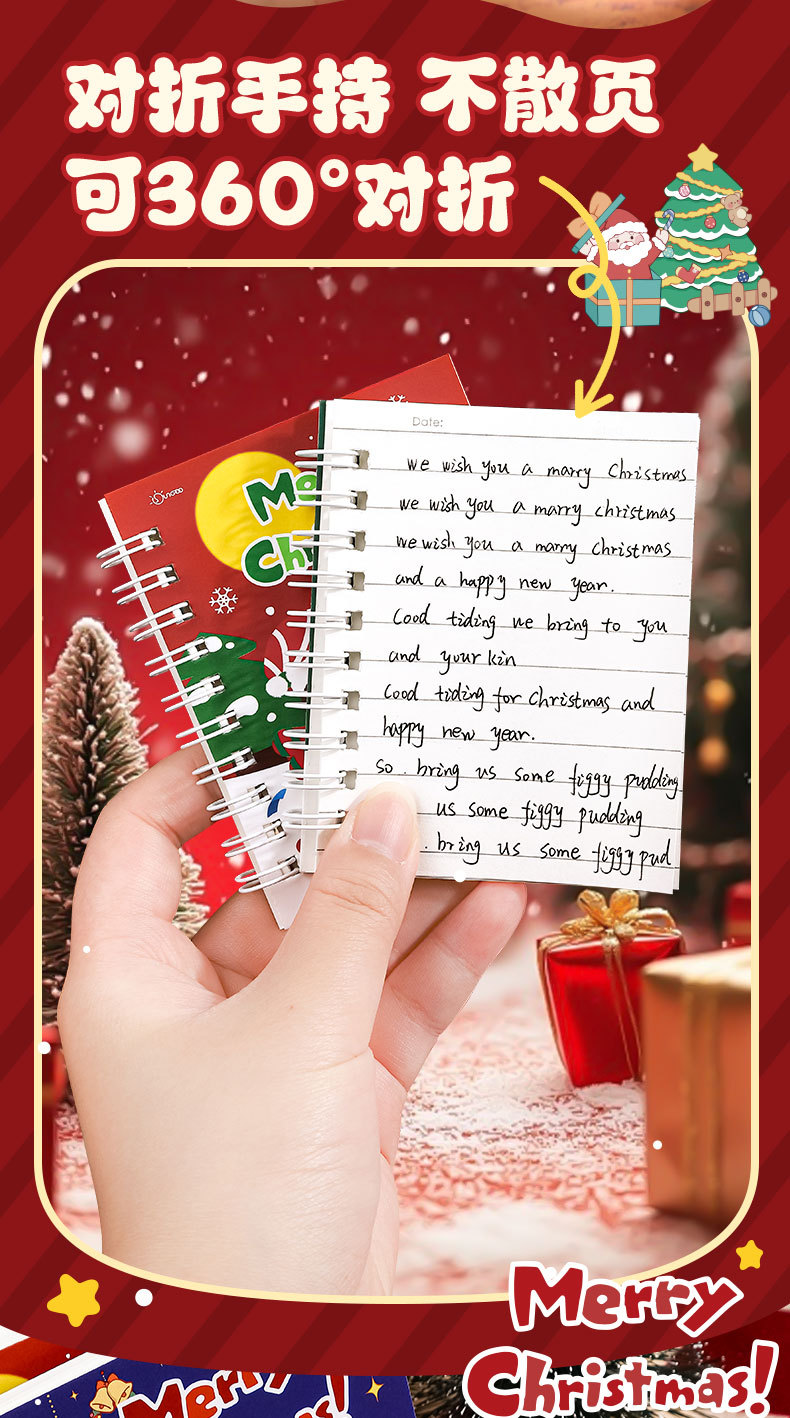 对折手持 不散页
可360°对折
Date:
we wish you a marry Christmas
we wish you a marry christmas
we wish you a marry christmas
and a happy new year.
Good tiding we bring to you
and your kin
Good tiding for Christmas and
happy new year.
so bring us some figgy pudding
us some figgy pudding
bring us some figgy pud
Merry
Christmas!
Merry